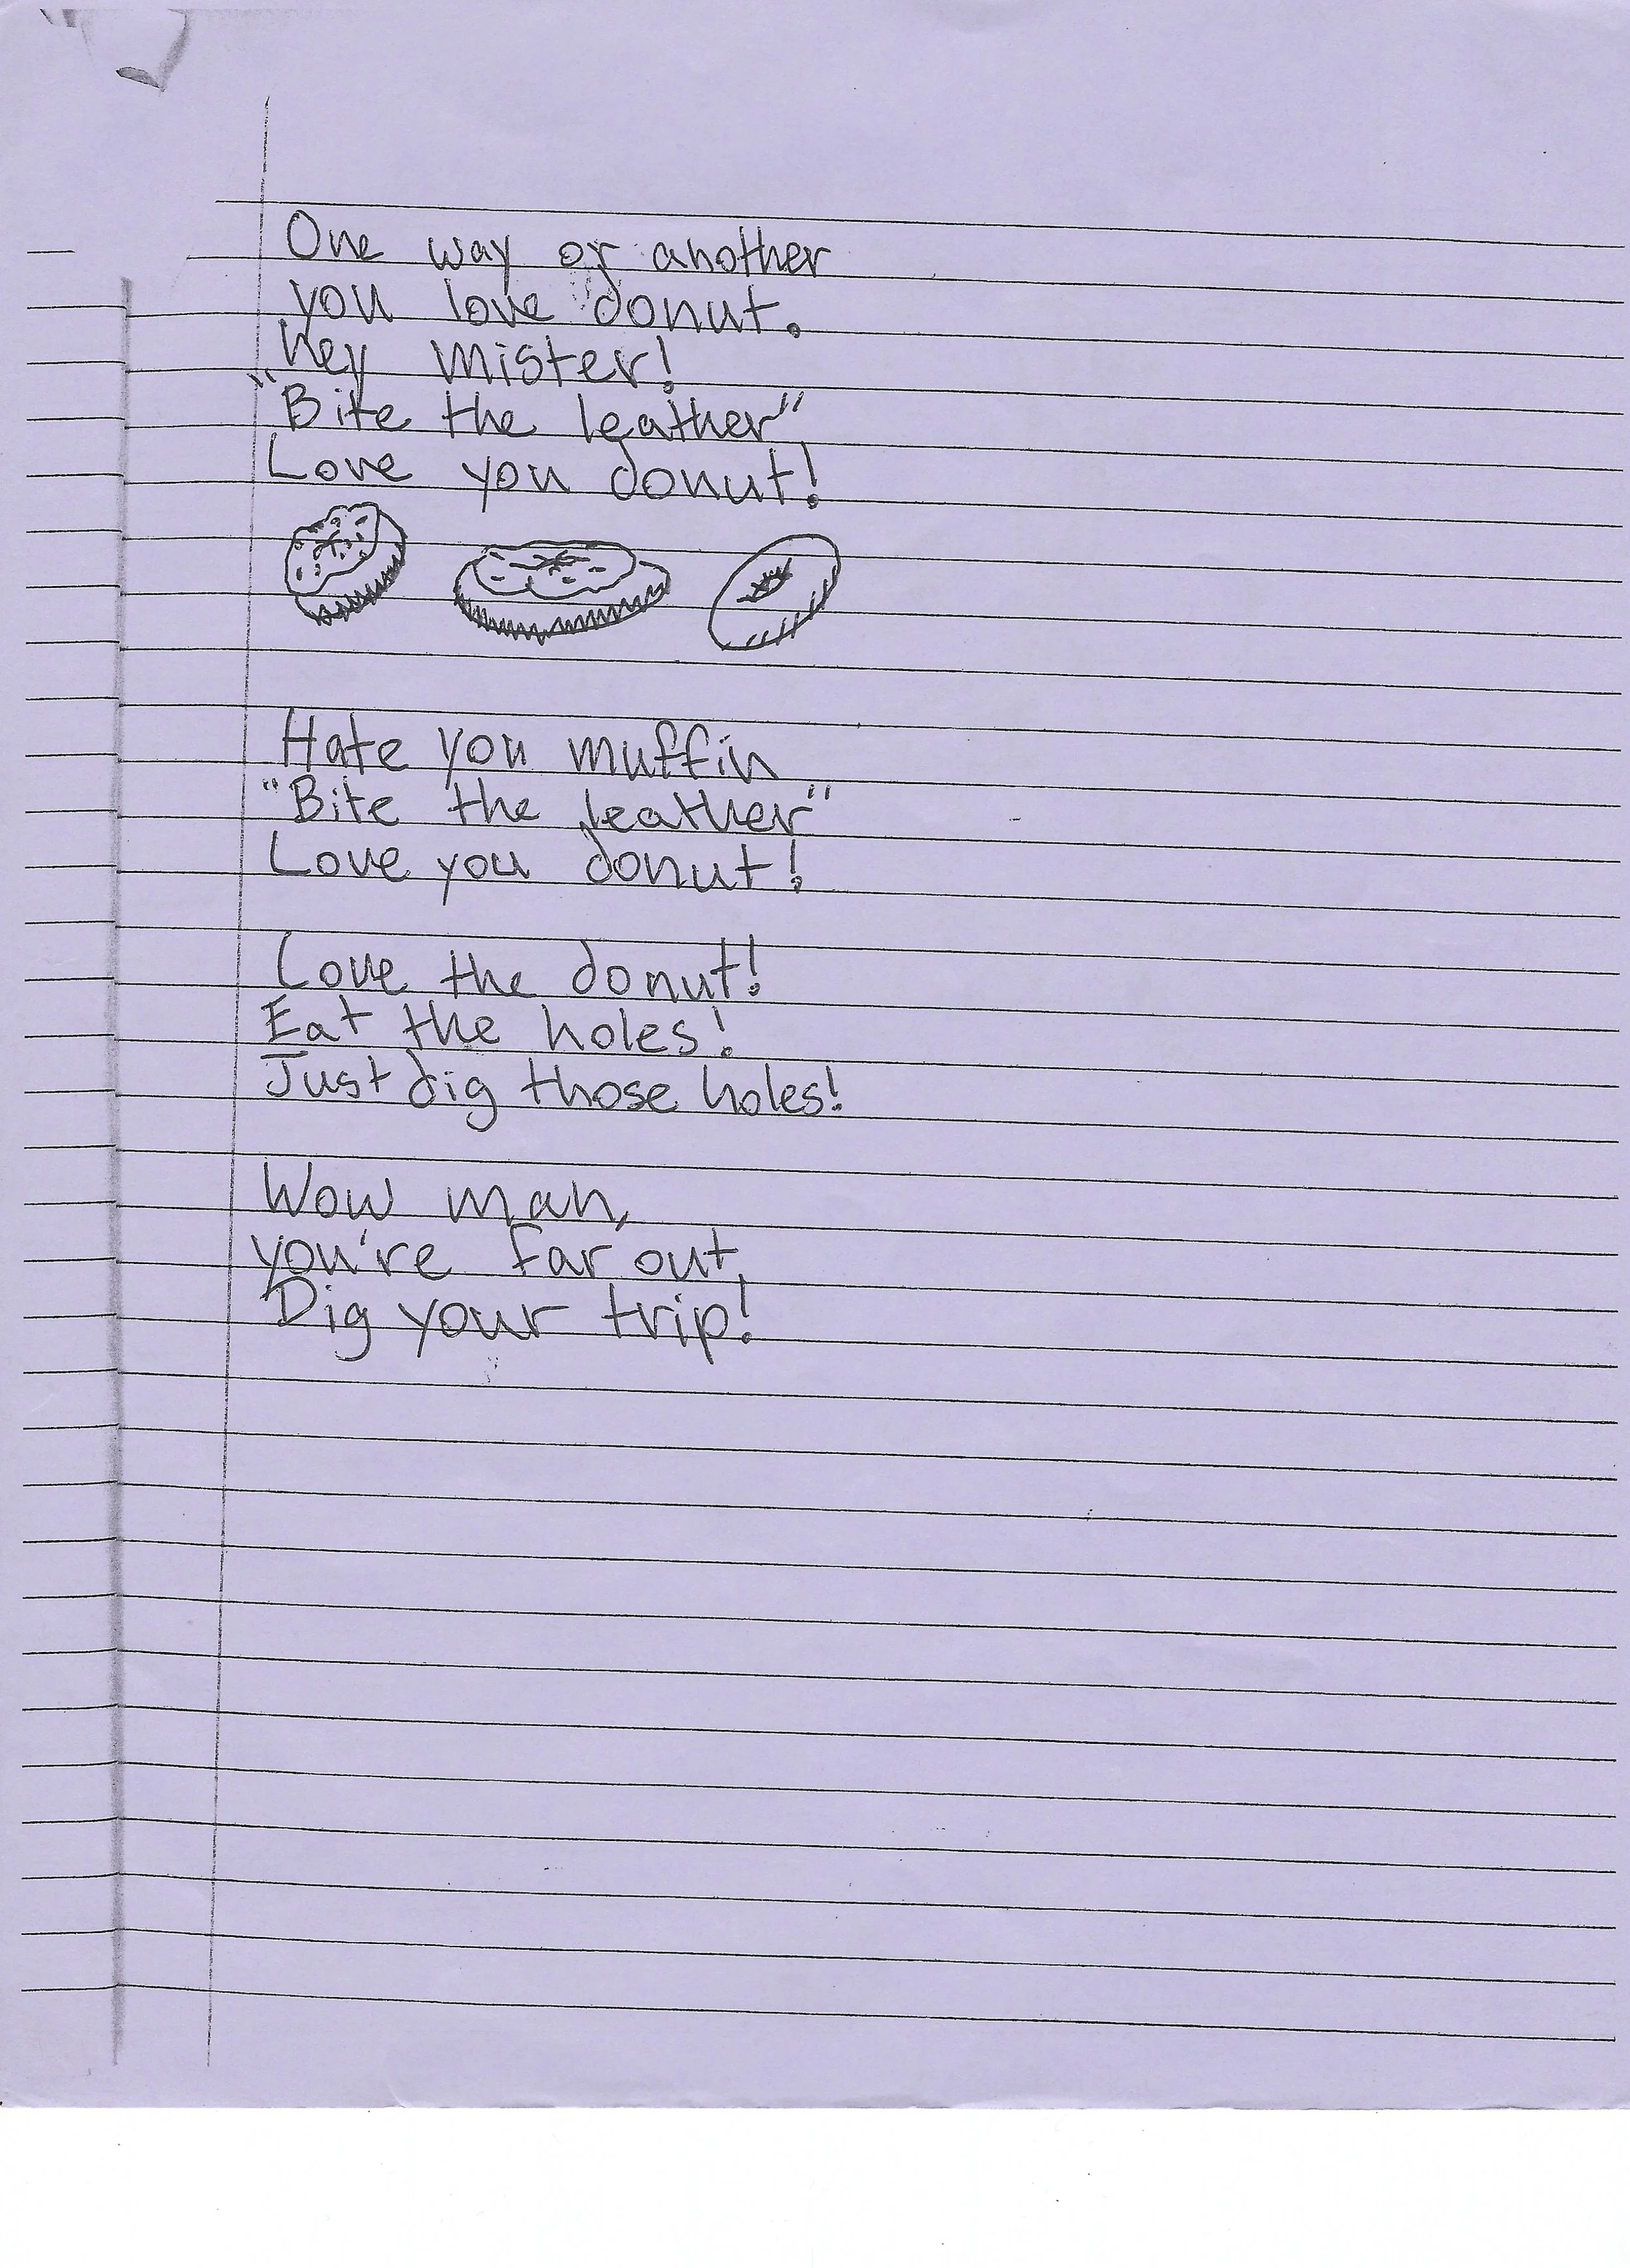 One way or another
you love donut.
Hey mister!
"Bite the leather"
Love you donut!
Hate you muffin
"Bite the leather"
Love you donut!
Love the donut!
Eat the holes!
Just dig those holes!
Wow man,
you're far out,
Dig your trip!